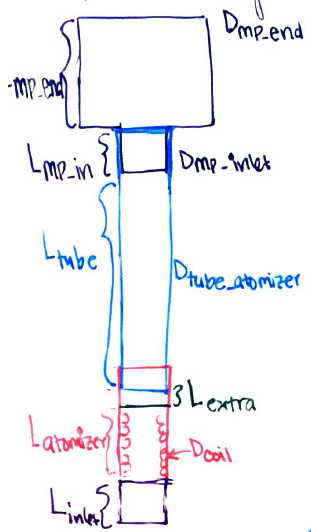 Dmp_end
-mp_end
Lmp_in
Dmp_inlet
Ltube
Dtube_atomizer
Lextra
Latomizer
Dcoil
Linlet